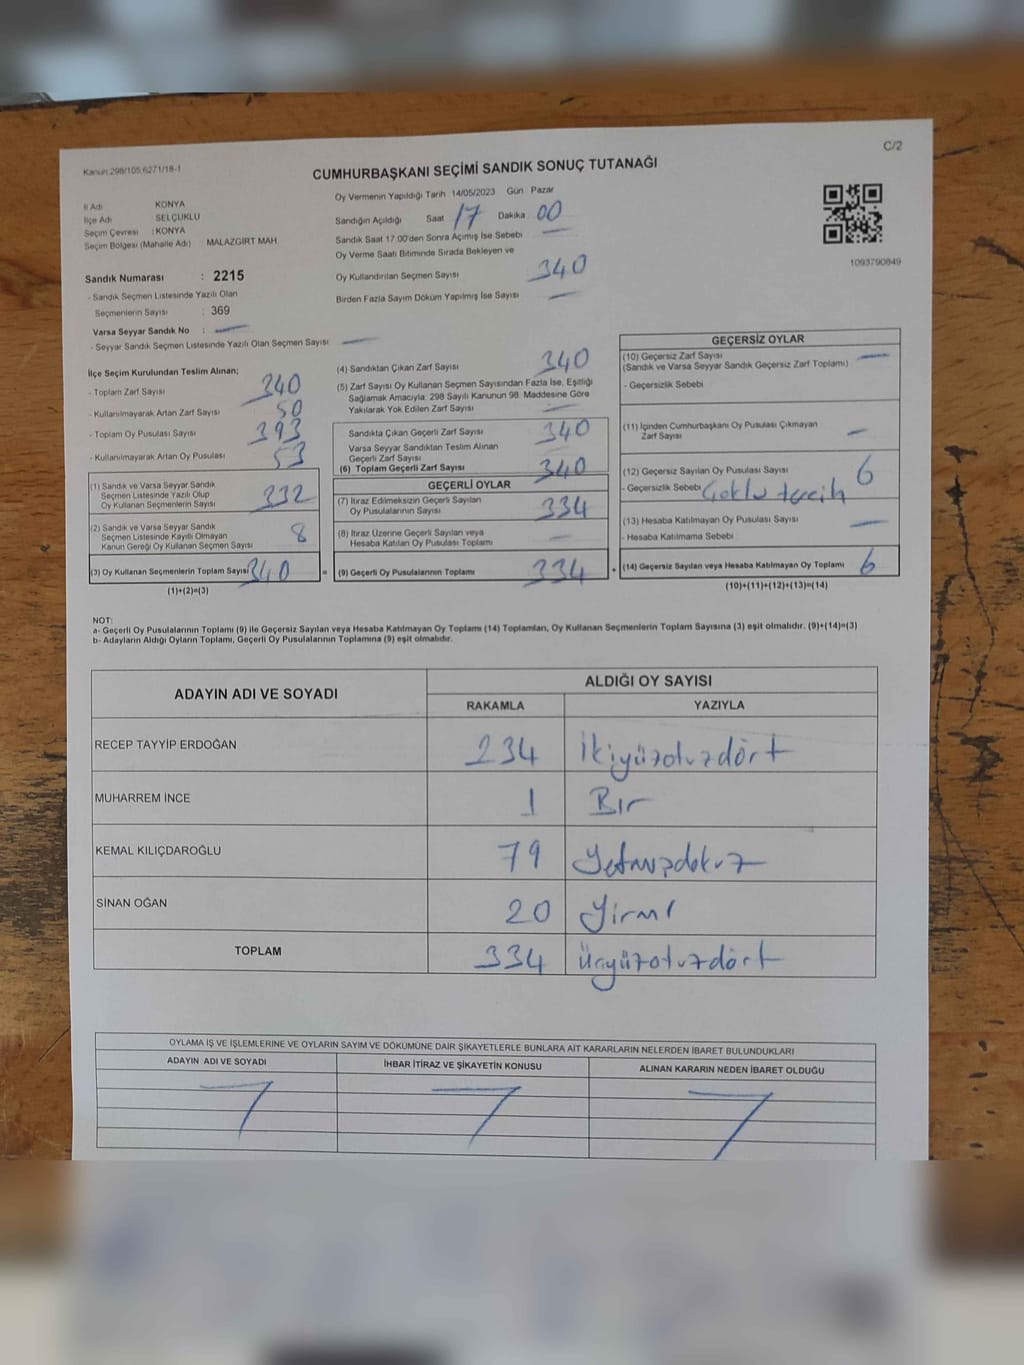 C/2
Kanun 298/105 6271/18-1
CUMHURBAŞKANI SEÇİMİ SANDIK SONUÇ TUTANAĞI
İl Adı KONYA
İlçe Adı SELÇUKLU
Seçim Çevresi : KONYA
Seçim Bölgesi (Mahalle Adı) MALAZGIRT MAH.
Sandık Numarası : 2215
- Sandık Seçmen Listesinde Yazılı Olan
Seçmenlerin Sayısı : 369
Varsa Seyyar Sandık No : —
- Seyyar Sandık Seçmen Listesinde Yazılı Olan Seçmen Sayısı : —
Oy Vermenin Yapıldığı Tarih : 14/05/2023 Gün Pazar
Sandığın Açıldığı Saat 17 Dakika 00
Sandık Saat 17:00'den Sonra Açılmış İse Sebebi —
Oy Verme Saati Bitiminde Sırada Bekleyen ve
Oy Kullandırılan Seçmen Sayısı 340
Birden Fazla Sayım Döküm Yapılmış İse Sayısı —
1093790849
İlçe Seçim Kurulundan Teslim Alınan;
- Toplam Zarf Sayısı 340
- Kullanılmayarak Artan Zarf Sayısı 50
- Toplam Oy Pusulası Sayısı 393
- Kullanılmayarak Artan Oy Pusulası 53
(1) Sandık ve Varsa Seyyar Sandık
Seçmen Listesinde Yazılı Olup
Oy Kullanan Seçmenlerin Sayısı 332
(2) Sandık ve Varsa Seyyar Sandık
Seçmen Listesinde Kayıtlı Olmayan
Kanun Gereği Oy Kullanan Seçmen Sayısı 8
(3) Oy Kullanan Seçmenlerin Toplam Sayısı 340 =
(1)+(2)=(3)
(4) Sandıktan Çıkan Zarf Sayısı 340
(5) Zarf Sayısı Oy Kullanan Seçmen Sayısından Fazla İse, Eşitliği
Sağlamak Amacıyla; 298 Sayılı Kanunun 98. Maddesine Göre
Yakılarak Yok Edilen Zarf Sayısı —
Sandıkta Çıkan Geçerli Zarf Sayısı 340
Varsa Seyyar Sandıktan Teslim Alınan
Geçerli Zarf Sayısı —
(6) Toplam Geçerli Zarf Sayısı 340
GEÇERLİ OYLAR
(7) İtiraz Edilmeksizin Geçerli Sayılan
Oy Pusulalarının Sayısı 334
(8) İtiraz Üzerine Geçerli Sayılan veya
Hesaba Katılan Oy Pusulası Toplamı —
(9) Geçerli Oy Pusulalarının Toplamı 334 +
GEÇERSİZ OYLAR
(10) Geçersiz Zarf Sayısı —
(Sandık ve Varsa Seyyar Sandık Geçersiz Zarf Toplamı)
- Geçersizlik Sebebi
(11) İçinden Cumhurbaşkanı Oy Pusulası Çıkmayan
Zarf Sayısı —
(12) Geçersiz Sayılan Oy Pusulası Sayısı 6
- Geçersizlik Sebebi Çoklu tercih
(13) Hesaba Katılmayan Oy Pusulası Sayısı —
- Hesaba Katılmama Sebebi
(14) Geçersiz Sayılan veya Hesaba Katılmayan Oy Toplamı 6
(10)+(11)+(12)+(13)=(14)
NOT:
a- Geçerli Oy Pusulalarının Toplamı (9) ile Geçersiz Sayılan veya Hesaba Katılmayan Oy Toplamı (14) Toplamları, Oy Kullanan Seçmenlerin Toplam Sayısına (3) eşit olmalıdır. (9)+(14)=(3)
b- Adayların Aldığı Oyların Toplamı, Geçerli Oy Pusulalarının Toplamına (9) eşit olmalıdır.
ADAYIN ADI VE SOYADI ALDIĞI OY SAYISI
RAKAMLA YAZIYLA
RECEP TAYYİP ERDOĞAN 234 İkiyüzotuzdört
MUHARREM İNCE 1 Bir
KEMAL KILIÇDAROĞLU 79 Yetmişdokuz
SİNAN OĞAN 20 Yirmi
TOPLAM 334 Üçyüzotuzdört
OYLAMA İŞ VE İŞLEMLERİNE VE OYLARIN SAYIM VE DÖKÜMÜNE DAİR ŞİKAYETLERLE BUNLARA AİT KARARLARIN NELERDEN İBARET BULUNDUKLARI
ADAYIN ADI VE SOYADI İHBAR İTİRAZ VE ŞİKAYETİN KONUSU ALINAN KARARIN NEDEN İBARET OLDUĞU